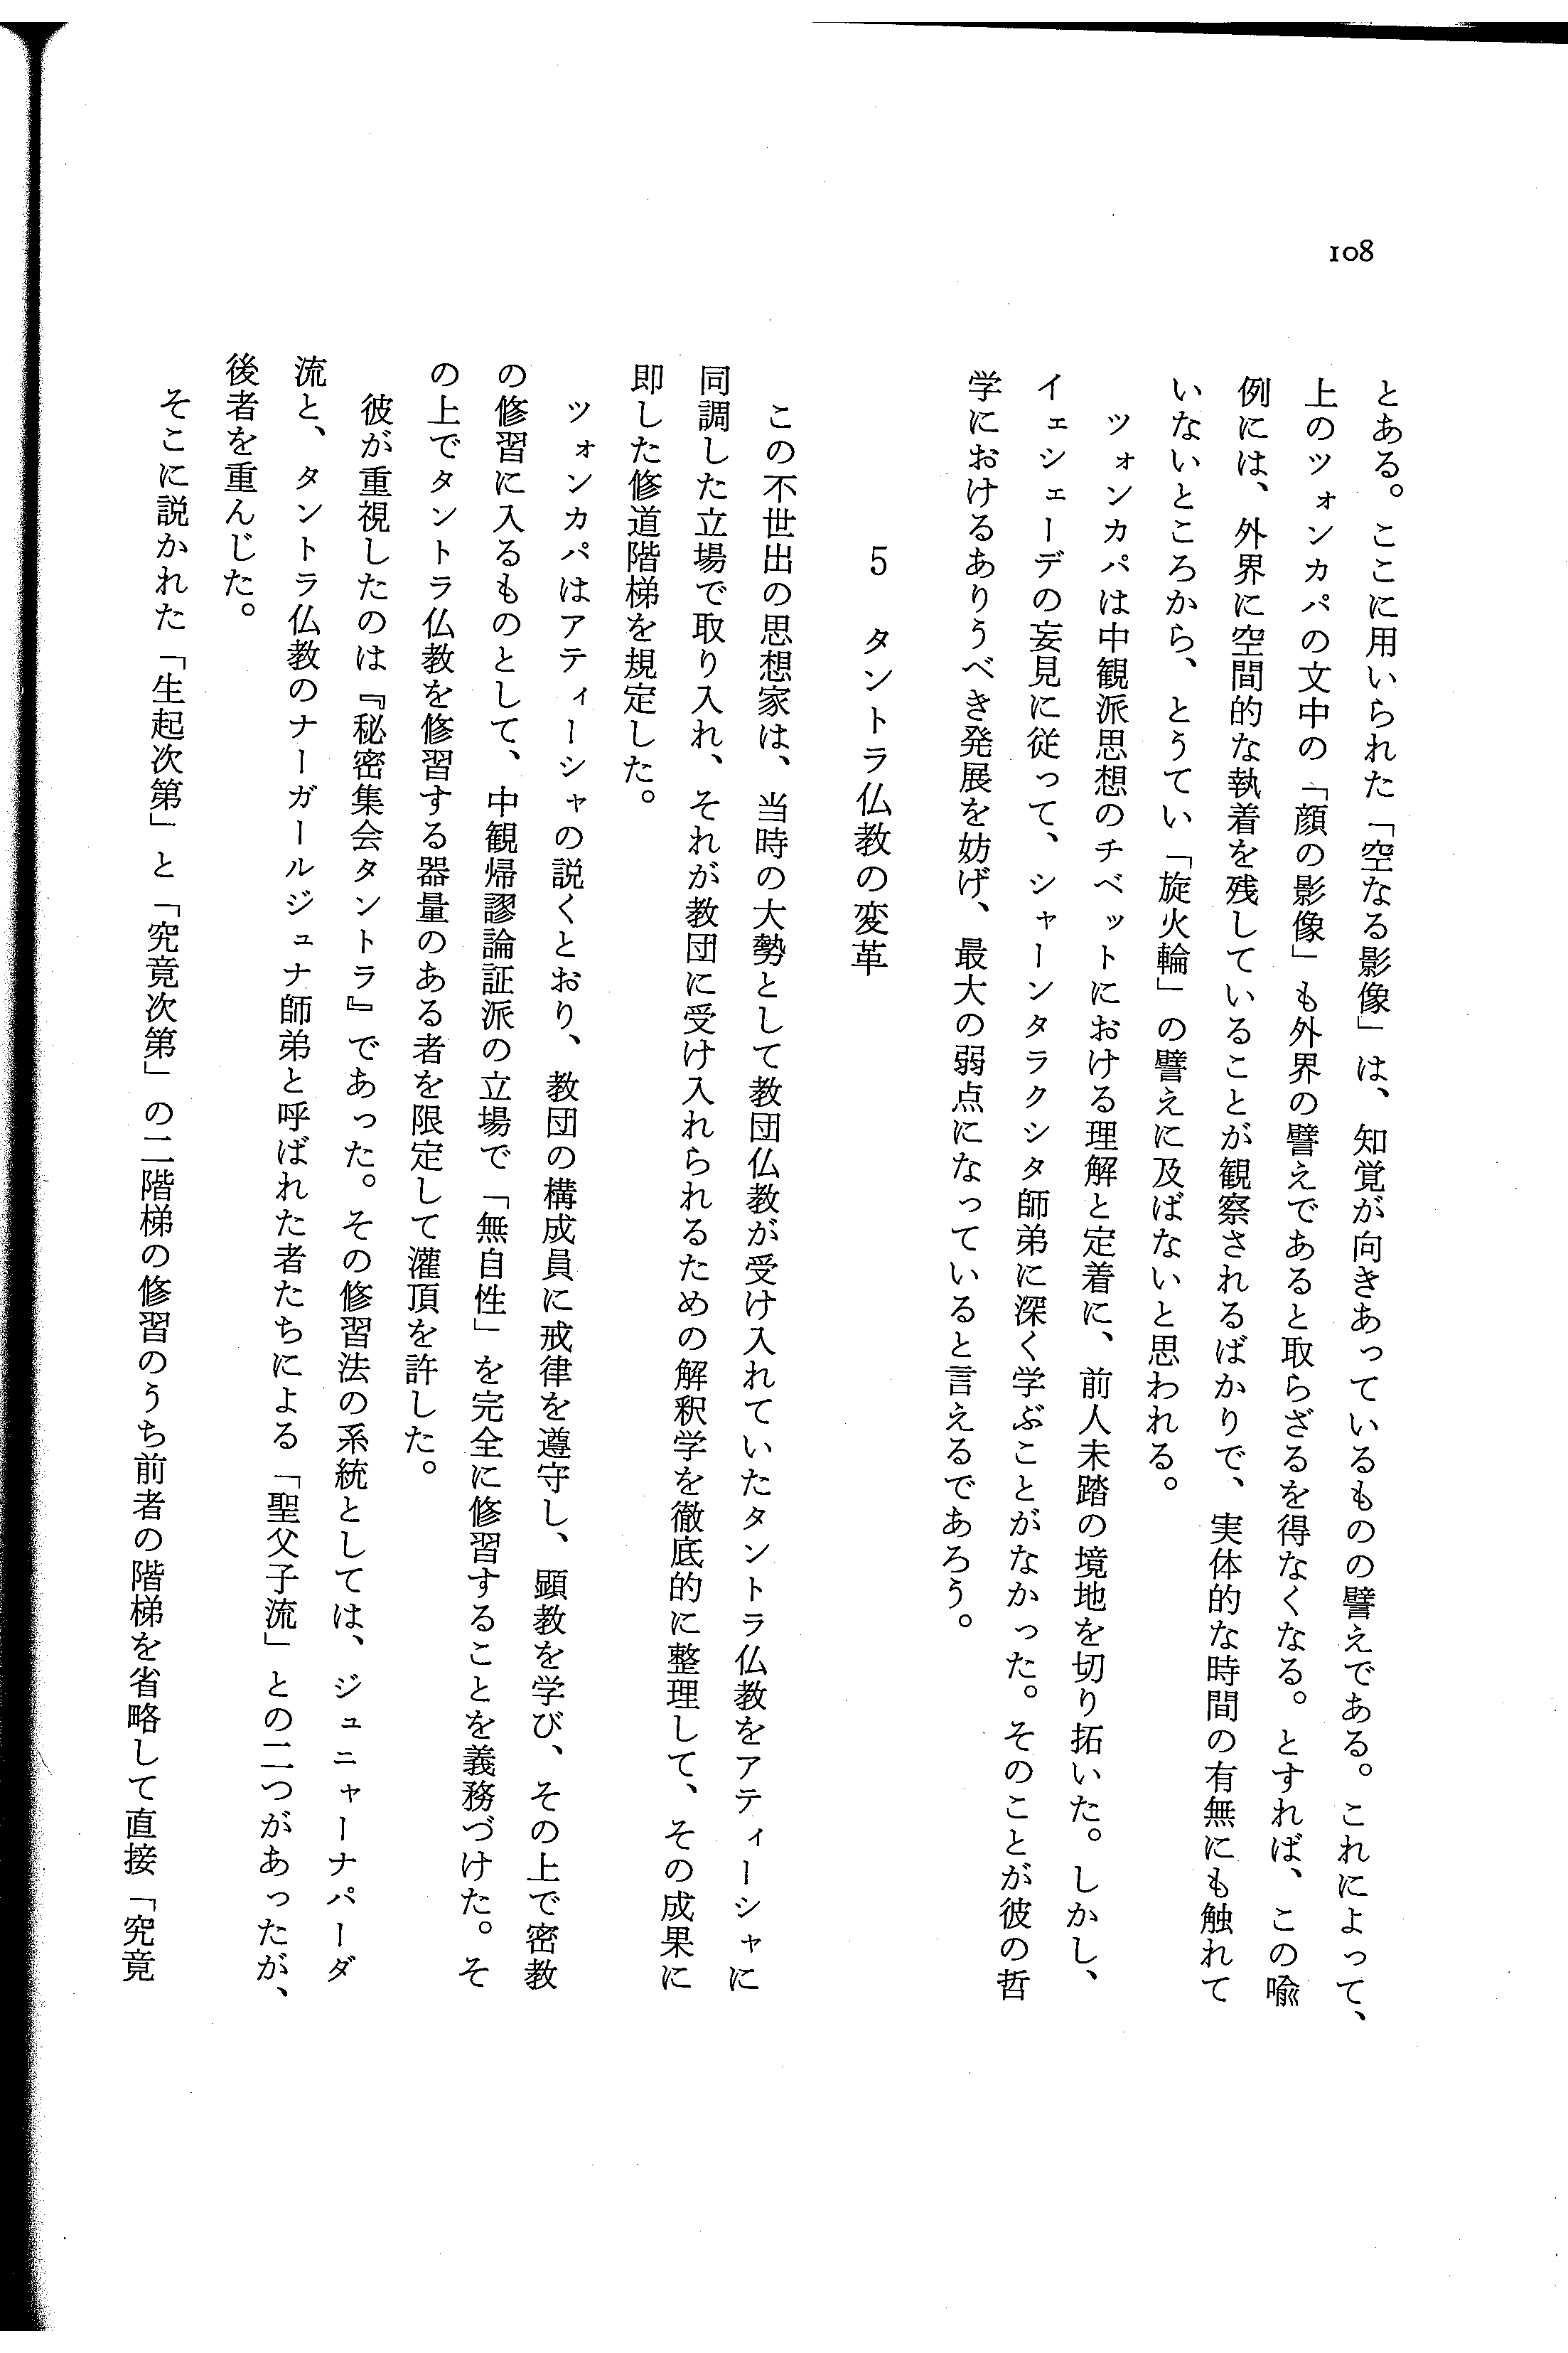 108
とある。ここに用いられた「空なる影像」は、知覚が向きあっているものの譬えである。これによって、
上のツォンカパの文中の「顔の影像」も外界の譬えであると取らざるを得なくなる。とすれば、この喩
例には、外界に空間的な執着を残していることが観察されるばかりで、実体的な時間の有無にも触れて
いないところから、とうてい「旋火輪」の譬えに及ばないと思われる。
ツォンカパは中観派思想のチベットにおける理解と定着に、前人未踏の境地を切り拓いた。しかし、
イェシェーデの妄見に従って、シャーンタラクシタ師弟に深く学ぶことがなかった。そのことが彼の哲
学におけるありうべき発展を妨げ、最大の弱点になっていると言えるであろう。
5 タントラ仏教の変革
この不世出の思想家は、当時の大勢として教団仏教が受け入れていたタントラ仏教をアティーシャに
同調した立場で取り入れ、それが教団に受け入れられるための解釈学を徹底的に整理して、その成果に
即した修道階梯を規定した。
ツォンカパはアティーシャの説くとおり、教団の構成員に戒律を遵守し、顕教を学び、その上で密教
の修習に入るものとして、中観帰謬論証派の立場で「無自性」を完全に修習することを義務づけた。そ
の上でタントラ仏教を修習する器量のある者を限定して灌頂を許した。
彼が重視したのは『秘密集会タントラ』であった。その修習法の系統としては、ジュニャーナパーダ
流と、タントラ仏教のナーガールジュナ師弟と呼ばれた者たちによる「聖父子流」との二つがあったが、
後者を重んじた。
そこに説かれた「生起次第」と「究竟次第」の二階梯の修習のうち前者の階梯を省略して直接「究竟